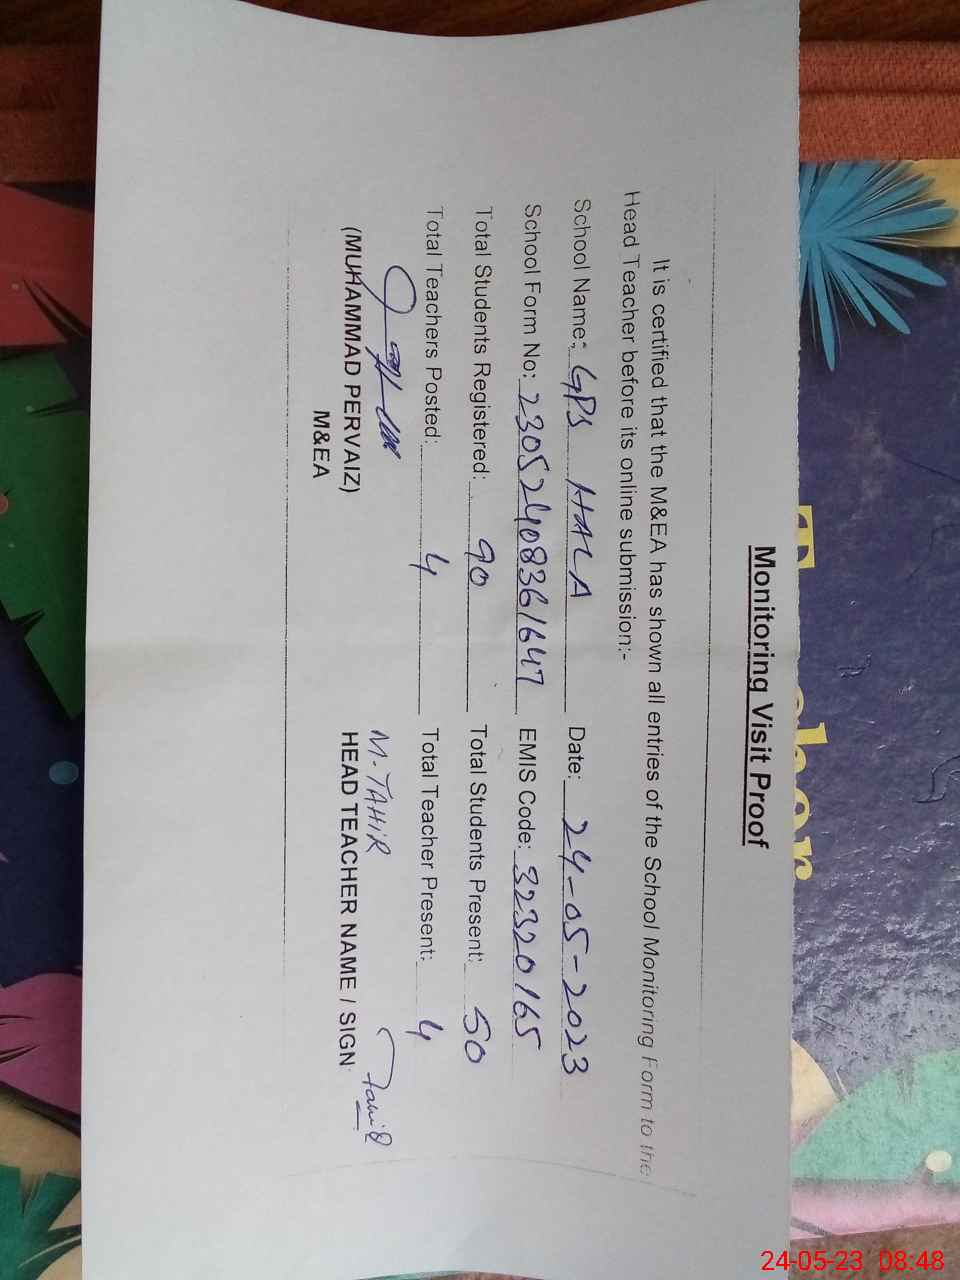 Monitoring Visit Proof
It is certified that the M&EA has shown all entries of the School Monitoring Form to the
Head Teacher before its online submission:-
School Name: GPS HALA Date: 24-05-2023
School Form No: 23052408361647 EMIS Code: 32320165
Total Students Registered: 90 Total Students Present: 50
Total Teachers Posted: 4 Total Teacher Present: 4
M. TAHIR Tahir
(MUHAMMAD PERVAIZ) HEAD TEACHER NAME / SIGN
M&EA
24-05-23 08:48